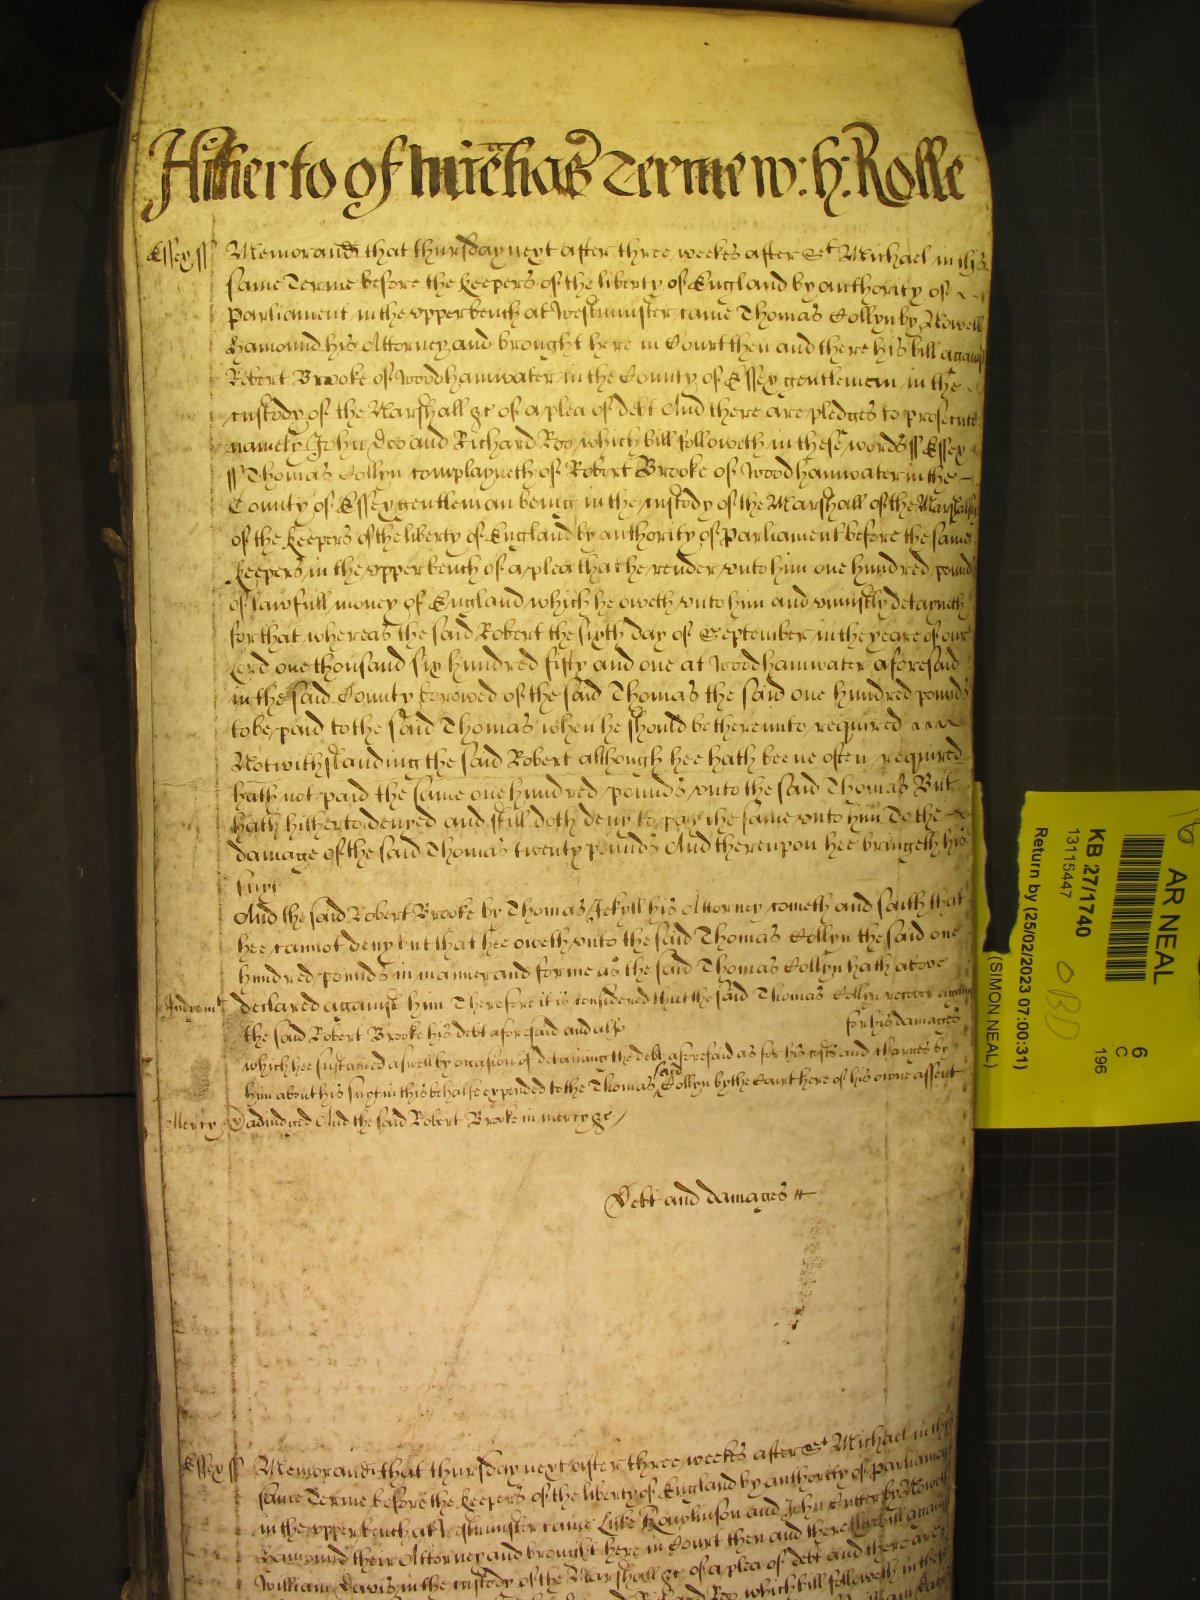 Hitherto of Michas Terme w: h: Rolle
Essex ss Memorand that thursday next after three weekes after St Michael in this
same Terme before the Keepers of the liberty of England by authority of
Parliament in the upper bench at Westminster came Thomas Collyn by Nowell
Hamound his Attorney and brought here in Court then and there his bill against
Robert Brooke of Woodhamwater in the County of Essex gentleman in the
custody of the Marshall &c of a plea of debt And there are pledges to prosecute
namely John Doo and Richard Roo which bill followeth in these words ss Essex
ss Thomas Collyn complayneth of Robert Brooke of Woodhamwater in the
County of Essex gentleman being in the custody of the Marshall of the Marshalsey
of the Keepers of the liberty of England by authority of Parliament before the same
Keepers in the upper bench of a plea that he render unto him one hundred pounds
of lawfull money of England which he oweth unto him and uniustly detayneth
for that whereas the said Robert the sixth day of September in the yeare of our
Lord one thousand six hundred fifty and one at Woodhamwater aforesaid
in the said County borowed of the said Thomas the said one hundred pounds
to be paid to the said Thomas when he should be thereunto required
Notwithstanding the said Robert although hee hath beene often required
hath not paid the same one hundred pounds unto the said Thomas But
hath hitherto denyed and still doth deny to pay the same unto him To the
damage of the said Thomas twenty pounds And thereupon hee bringeth his
suyt
And the said Robert Brooke by Thomas Jekyll his Attorney cometh and saith that
hee cannot deny but that hee oweth unto the said Thomas Collyn the said one
hundred pounds in manner and forme as the said Thomas Collyn hath above
Judgemt declared against him Therefore it is considered that the said Thomas Collyn recover against
the said Robert Brooke his debt aforesaid and also for his damages
which hee sustained aswell by occasion of detaining the debt aforesaid as for his costs and charges by
him about his suyt in this behalfe expended to the said Thomas Collyn by the Court here of his owne assent
Mercy adiudged And the said Robert Brooke in mercy &c
Debt and damages
Essex ss Memorand that thursday next after three weekes after St Michael in this
same Terme before the Keepers of the liberty of England by authority of Parliament
in the upper bench at Westminster came Luke Rawlinson and John Rutter by Nowell
Hamound their Attorney and brought here in Court then and there their bill against
William Davis in the custody of the Marshall &c of a plea of debt and there are
Roo which bill followeth in these
AR NEAL
KB 27/1740
13115447
Return by (25/02/2023 07:00:31)
(SIMON NEAL)
6
C
196